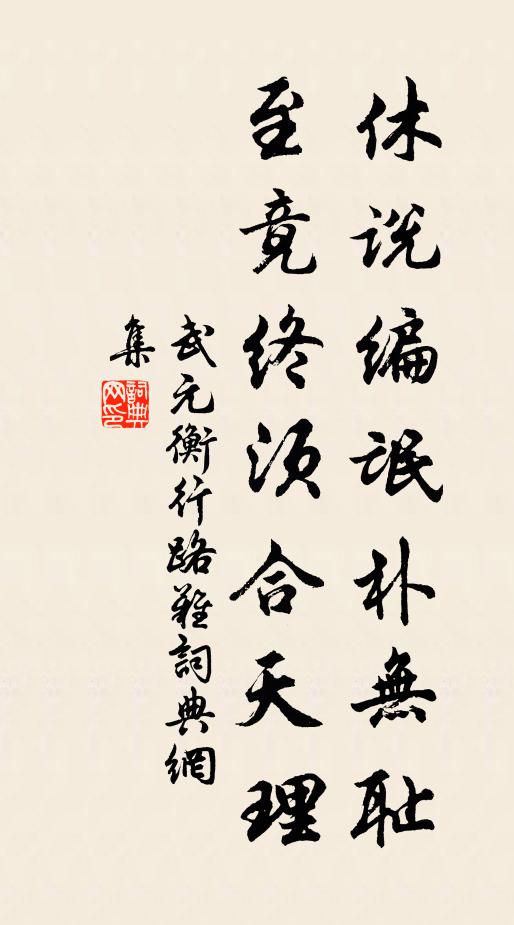 休说编氓朴無耻
至竟终须合天理
武元衡行路难詞典網
集
詞典
网印